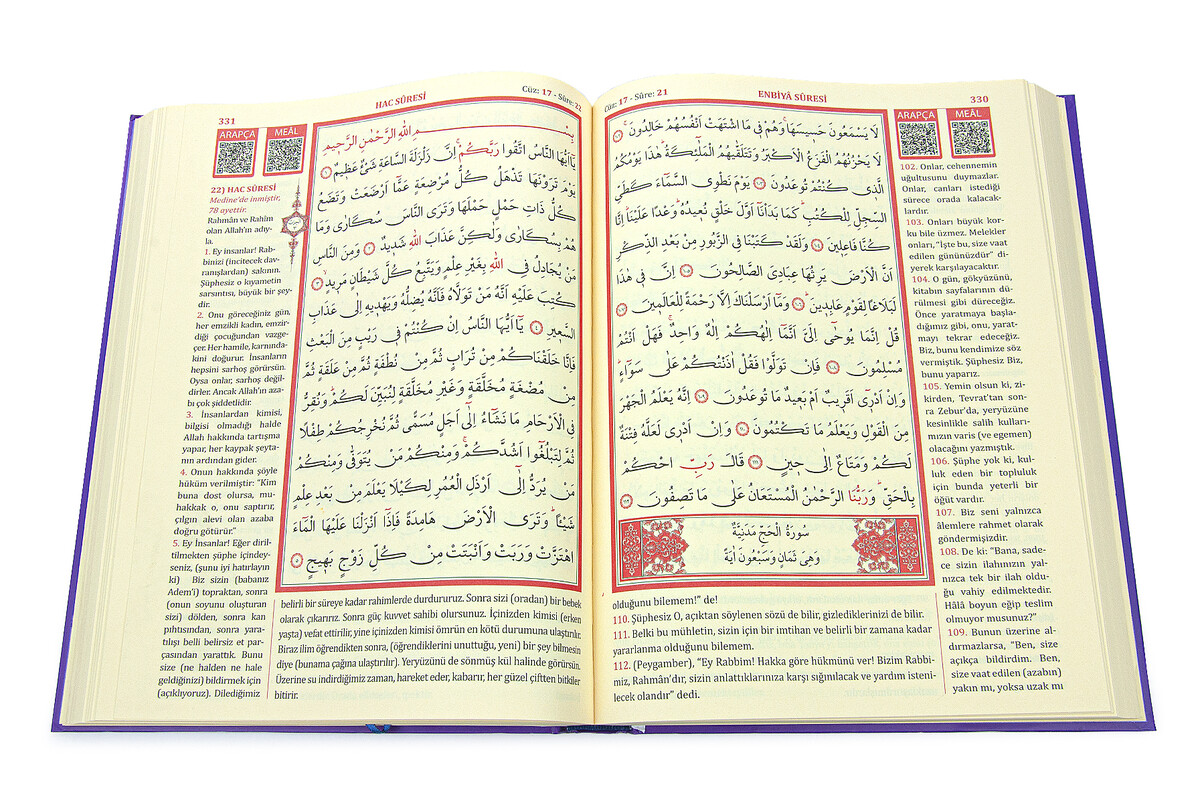 Cüz: 17 - Sûre: 21
ENBİYÂ SÛRESİ
330
لَا يَسْمَعُونَ حَسِيسَهَاۚ وَهُمْ فِي مَا اشْتَهَتْ اَنْفُسُهُمْ خَالِدُونَۚ ﴿١٠٢﴾
لَا يَحْزُنُهُمُ الْفَزَعُ الْاَكْبَرُ وَتَتَلَقّٰيهُمُ الْمَلٰٓئِكَةُۜ هٰذَا يَوْمُكُمُ
الَّذِي كُنْتُمْ تُوعَدُونَ ﴿١٠٣﴾ يَوْمَ نَطْوِي السَّمَٓاءَ كَطَيِّ
السِّجِلِّ لِلْكُتُبِۜ كَمَا بَدَأْنَٓا اَوَّلَ خَلْقٍ نُعِيدُهُۜ وَعْدًا عَلَيْنَاۜ اِنَّا
كُنَّا فَاعِلِينَ ﴿١٠٤﴾ وَلَقَدْ كَتَبْنَا فِي الزَّبُورِ مِنْ بَعْدِ الذِّكْرِ
اَنَّ الْاَرْضَ يَرِثُهَا عِبَادِيَ الصَّالِحُونَ ﴿١٠٥﴾ اِنَّ فِي هٰذَا
لَبَلَاغًا لِقَوْمٍ عَابِدِينَۜ ﴿١٠٦﴾ وَمَٓا اَرْسَلْنَاكَ اِلَّا رَحْمَةً لِلْعَالَمِينَ ﴿١٠٧﴾
قُلْ اِنَّمَا يُوحٰٓى اِلَيَّ اَنَّمَٓا اِلٰهُكُمْ اِلٰهٌ وَاحِدٌۚ فَهَلْ اَنْتُمْ
مُسْلِمُونَ ﴿١٠٨﴾ فَاِنْ تَوَلَّوْا فَقُلْ اٰذَنْتُكُمْ عَلٰى سَوَٓاءٍۜ
وَاِنْ اَدْرِٓي اَقَرِيبٌ اَمْ بَعِيدٌ مَا تُوعَدُونَ ﴿١٠٩﴾ اِنَّهُ يَعْلَمُ الْجَهْرَ
مِنَ الْقَوْلِ وَيَعْلَمُ مَا تَكْتُمُونَ ﴿١١٠﴾ وَاِنْ اَدْرِي لَعَلَّهُ فِتْنَةٌ
لَكُمْ وَمَتَاعٌ اِلٰى حِينٍ ﴿١١١﴾ قَالَ رَبِّ احْكُمْ
بِالْحَقِّۜ وَرَبُّنَا الرَّحْمٰنُ الْمُسْتَعَانُ عَلٰى مَا تَصِفُونَ ﴿١١٢﴾
سُورَةُ الْحَجِّ مَدَنِيَّةٌ
وَهِيَ ثَمَانٍ وَسَبْعُونَ اٰيَةً
ARAPÇA
MEÂL
102. Onlar, cehennemin
uğultusunu duymazlar.
Onlar, canları istediği
sürece orada kalacak-
lardır.
103. Onları büyük kor-
ku bile üzmez. Melekler
onları, "İşte bu, size vaat
edilen gününüzdür" di-
yerek karşılayacaktır.
104. O gün, gökyüzünü,
kitabın sayfalarının dü-
rülmesi gibi düreceğiz.
Önce yaratmaya başla-
dığımız gibi, onu, yarat-
mayı tekrar edeceğiz.
Biz, bunu kendimize söz
vermiştik. Şüphesiz Biz,
bunu yaparız.
105. Yemin olsun ki, zi-
kirden, Tevrat'tan son-
ra Zebur'da, yeryüzüne
kesinlikle salih kulları-
mızın varis (ve egemen)
olacağını yazmıştık.
106. Şüphe yok ki, kul-
luk eden bir topluluk
için bunda yeterli bir
öğüt vardır.
107. Biz seni yalnızca
âlemlere rahmet olarak
göndermişizdir.
108. De ki: "Bana, sade-
ce sizin ilahınızın yal-
nızca tek bir ilah oldu-
ğu vahiy edilmektedir.
Hâlâ boyun eğip teslim
olmuyor musunuz?"
109. Bunun üzerine al-
dırmazlarsa, "Ben, size
açıkça bildirdim. Ben,
size vaat edilen (azabın)
yakın mı, yoksa uzak mı
olduğunu bilemem!" de!
110. Şüphesiz O, açıktan söylenen sözü de bilir, gizlediklerinizi de bilir.
111. Belki bu mühletin, sizin için bir imtihan ve belirli bir zamana kadar
yararlanma olduğunu bilemem.
112. (Peygamber), "Ey Rabbim! Hakka göre hükmünü ver! Bizim Rabbi-
miz, Rahmân'dır, sizin anlattıklarınıza karşı sığınılacak ve yardım isteni-
lecek olandır" dedi.
331
HAC SÛRESİ
Cüz: 17 - Sûre: 21
بِسْمِ اللهِ الرَّحْمٰنِ الرَّحِيمِ
يَٓا اَيُّهَا النَّاسُ اتَّقُوا رَبَّكُمْۚ اِنَّ زَلْزَلَةَ السَّاعَةِ شَيْءٌ عَظِيمٌ ﴿١﴾
يَوْمَ تَرَوْنَهَا تَذْهَلُ كُلُّ مُرْضِعَةٍ عَمَّٓا اَرْضَعَتْ وَتَضَعُ
كُلُّ ذَاتِ حَمْلٍ حَمْلَهَا وَتَرَى النَّاسَ سُكَارٰى وَمَا
هُمْ بِسُكَارٰى وَلٰكِنَّ عَذَابَ اللهِ شَدِيدٌ ﴿٢﴾ وَمِنَ النَّاسِ
مَنْ يُجَادِلُ فِي اللهِ بِغَيْرِ عِلْمٍ وَيَتَّبِعُ كُلَّ شَيْطَانٍ مَرِيدٍۙ ﴿٣﴾
كُتِبَ عَلَيْهِ اَنَّهُ مَنْ تَوَلَّاهُ فَاَنَّهُ يُضِلُّهُ وَيَهْدِيهِ اِلٰى عَذَابِ
السَّعِيرِ ﴿٤﴾ يَٓا اَيُّهَا النَّاسُ اِنْ كُنْتُمْ فِي رَيْبٍ مِنَ الْبَعْثِ
فَاِنَّا خَلَقْنَاكُمْ مِنْ تُرَابٍ ثُمَّ مِنْ نُطْفَةٍ ثُمَّ مِنْ عَلَقَةٍ ثُمَّ
مِنْ مُضْغَةٍ مُخَلَّقَةٍ وَغَيْرِ مُخَلَّقَةٍ لِنُبَيِّنَ لَكُمْۜ وَنُقِرُّ
فِي الْاَرْحَامِ مَا نَشَٓاءُ اِلٰٓى اَجَلٍ مُسَمًّى ثُمَّ نُخْرِجُكُمْ طِفْلًا
ثُمَّ لِتَبْلُغُٓوا اَشُدَّكُمْۚ وَمِنْكُمْ مَنْ يُتَوَفّٰى وَمِنْكُمْ
مَنْ يُرَدُّ اِلٰٓى اَرْذَلِ الْعُمُرِ لِكَيْلَا يَعْلَمَ مِنْ بَعْدِ عِلْمٍ
شَيْـًٔاۜ وَتَرَى الْاَرْضَ هَامِدَةً فَاِذَٓا اَنْزَلْنَا عَلَيْهَا الْمَٓاءَ
اهْتَزَّتْ وَرَبَتْ وَاَنْبَتَتْ مِنْ كُلِّ زَوْجٍ بَهِيجٍ ﴿٥﴾
ARAPÇA
MEÂL
22) HAC SÛRESİ
Medine'de inmiştir,
78 ayettir.
Rahmân ve Rahîm
olan Allah'ın adıy-
la.
1. Ey insanlar! Rab-
binizi (incitecek dav-
ranışlardan) sakının.
Şüphesiz o kıyametin
sarsıntısı, büyük bir şey-
dir.
2. Onu göreceğiniz gün,
her emzikli kadın, emzir-
diği çocuğundan vazge-
çer. Her hamile, karnında-
kini doğurur. İnsanların
hepsini sarhoş görürsün.
Oysa onlar, sarhoş değil-
dirler. Ancak Allah'ın aza-
bı çok şiddetlidir.
3. İnsanlardan kimisi,
bilgisi olmadığı halde
Allah hakkında tartışma
yapar, her kaypak şeyta-
nın ardından gider.
4. Onun hakkında şöyle
hüküm verilmiştir: "Kim
buna dost olursa, mu-
hakkak o, onu saptırır,
çılgın alevi olan azaba
doğru götürür."
5. Ey İnsanlar! Eğer diril-
tilmekten şüphe içindey-
seniz, (şunu iyi hatırlayın
ki) Biz sizin (babanız
Adem'i) topraktan, sonra
(onun soyunu oluşturan
sizi) dölden, sonra kan
pıhtısından, sonra yara-
tılışı belli belirsiz et par-
çasından yarattık. Bunu
size (ne halden ne hale
geldiğinizi) bildirmek için
(açıklıyoruz). Dilediğimiz
belirli bir süreye kadar rahimlerde durdururuz. Sonra sizi (oradan) bir bebek
olarak çıkarırız. Sonra güç kuvvet sahibi olursunuz. İçinizden kimisi (erken
yaşta) vefat ettirilir, yine içinizden kimisi ömrün en kötü durumuna ulaştırılır.
Biraz ilim öğrendikten sonra, (öğrendiklerini unuttuğu, yeni) bir şey bilmesin
diye (bunama çağına ulaştırılır). Yeryüzünü de sönmüş kül halinde görürsün.
Üzerine su indirdiğimiz zaman, hareket eder, kabarır, her güzel çiftten bitkiler
bitirir.